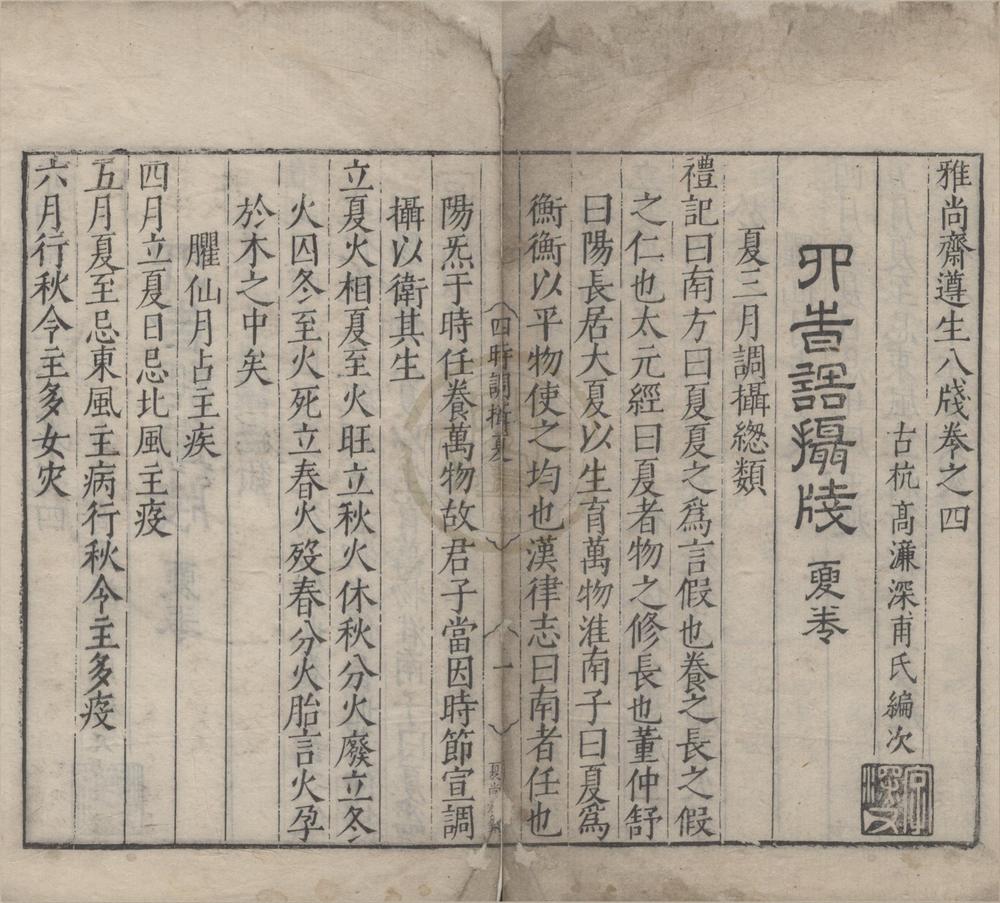 雅尚齋遵生八牋卷之四
古杭高濂深甫氏編次
四時調攝牋 夏卷
夏三月調攝緫類
禮記曰南方曰夏夏之爲言假也養之長之假
之仁也太元經曰夏者物之修長也董仲舒
曰陽長居大夏以生育萬物淮南子曰夏爲
衡衡以平物使之均也漢律志曰南者任也
四時調攝夏
一
陽炁于時任養萬物故君子當因時節宣調
攝以衛其生
立夏火相夏至火旺立秋火休秋分火廢立冬
火囚冬至火死立春火殁春分火胎言火孕
於木之中矣
臞仙月占主疾
四月立夏日忌北風主疫
五月夏至忌東風主病行秋令主多疫
六月行秋令主多女灾